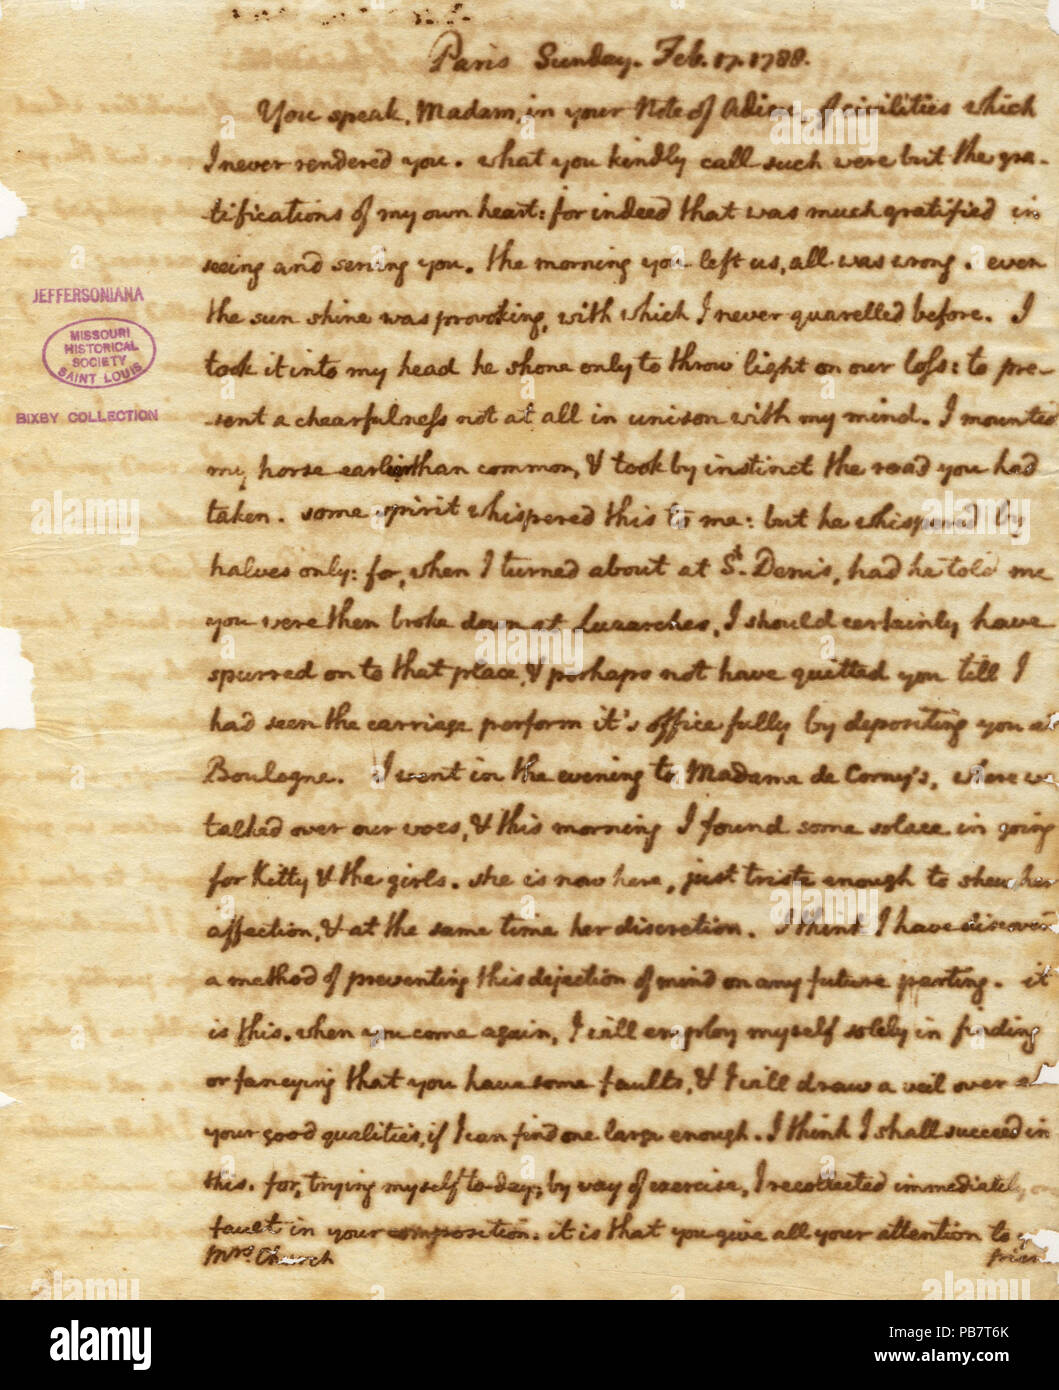 Paris Sunday. Feb. 17. 1788.
You speak, Madam, in your Note of Adieu, of civilities which
I never rendered you. what you kindly call such were but the gra-
tifications of my own heart: for indeed that was much gratified in
seeing and serving you. the morning you left us, all was wrong. even
the sun shine was provoking, with which I never quarelled before. I
took it into my head he shone only to throw light on our loss: to pre-
sent a chearfulness not at all in unison with my mind. I mounted
my horse earlier than common, & took by instinct the road you had
taken. some spirit whispered this to me: but he whispered by
halves only: for, when I turned about at St. Denis, had he told me
you were then broke down at Luzarches, I should certainly have
spurred on to that place, & perhaps not have quitted you till I
had seen the carriage perform it's office fully by depositing you at
Boulogne. I went in the evening to Madame de Corny's, where we
talked over our woes, & this morning I found some solace in going
for Kitty & the girls. she is now here, just triste enough to shew her
affection, & at the same time her discretion. I think I have discover
a method of preventing this dejection of mind on any future parting. it
is this. when you come again, I will employ myself solely in finding
or fancying that you have some faults, & I will draw a veil over
your good qualities, if I can find one large enough. I think I shall succeed in
this. for, trying myself to-day, by way of exercise, I recollected immediately
fault in your composition. it is that you give all your attention to
Mrs. Church
JEFFERSONIANA
MISSOURI
HISTORICAL
SOCIETY
SAINT LOUIS
BIXBY COLLECTION
alamy
Image ID: PB7T6K
www.alamy.com